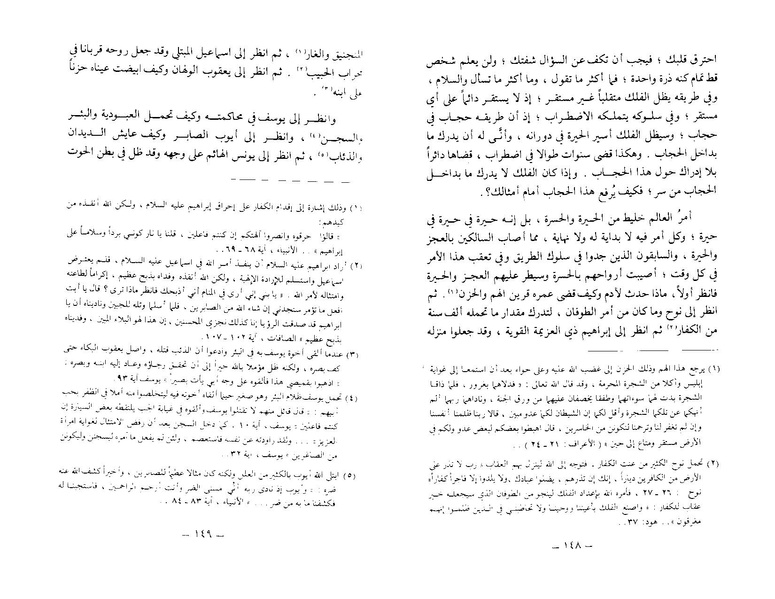 احترق قلبك ؛ فيجب أن تكف عن السؤال شفتك ؛ ولن يعلم شخص
قط تمام كنه ذرة واحدة ؛ فما أكثر ما تقول ، وما أكثر ما تسأل والسلام ،
وفي طريقه يظل الفلك متقلباً غير مستقر ؛ إذ لا يستقر دائماً على أي
مستقر ؛ وفي سلوكه يتملكه الاضطراب ؛ إذ أن طريقه حجاب في
حجاب ؛ وسيظل الفلك أسير الحيرة في دورانه ، وأنّى له أن يدرك ما
بداخل الحجاب . وهكذا قضى سنوات طوالا في اضطراب ، قضاها دائراً
بلا إدراك حول هذا الحجاب . وإذا كان الفلك لا يدرك ما بداخل
الحجاب من سر ؛ فكيف يُرفع هذا الحجاب أمام أمثالك؟.
أمرُ العالم خليط من الحيرة والحسرة ، بل إنه حيرة في حيرة في
حيرة ؛ وكل أمر فيه لا بداية له ولا نهاية ، مما أصاب السالكين بالعجز
والحيرة ، والسابقون الذين جدوا في سلوك الطريق وفي تعقب هذا الأمر
في كل وقت ؛ أصيبت أرواحهم بالحسرة وسيطر عليهم العجز والحيرة
فانظر أولاً، ماذا حدث لآدم وكيف قضى عمره قرين الهم والحزن(١). ثم
انظر إلى نوح وما كان من أمر الطوفان ، لتدرك مقدار ما تحمله ألف سنة
من الكفار(٢) ثم انظر إلى إبراهيم ذي العزيمة القوية ، وقد جعلوا منزله
(١) يرجع هذا الهم وذلك الحزن إلى غضب الله عليه وعلى حواء بعد أن استمعا إلى غواية
إبليس وأكلا من الشجرة المحرمة ، وقد قال الله تعالى : « فدلاهما بغرور ، فلما ذاقا
الشجرة بدت لهما سوءاتهما وطفقا يخصفان عليهما من ورق الجنة ، وناداهما ربهما ألم
أنهكما عن تلكما الشجرة وأقل لكما إن الشيطان لكما عدو مبين ، قالا ربنا ظلمنا أنفسنا
وإن لم تغفر لنا وترحمنا لنكونن من الخاسرين ، قال اهبطوا بعضكم لبعض عدو ولكم في
الأرض مستقر ومتاع إلى حين » ( الأعراف : ٢١ – ٢٤ ) ..
(٢) تحمل نوح الكثير من عنت الكفار . فتوجه إلى الله لينزل بهم العقاب « رب لا تذر على
الأرض من الكافرين دياراً ، إنك إن تذرهم ، يضلوا عبادك ، ولا يلدوا إلا فاجراً كفاراً »
نوح : ٢٦ – ٢٧ ، فأمره الله بإعداد الفلك لينجو من الطوفان الذي سيجعله خير
عقاب للكفار : « واصنع الفلك بأعيننا ووحينا ولا تخاطبني في الذين ظلموا إنهم
مغرقون » .. هود : ٣٧ ..
— ١٤٨ —
المنجنيق والغار(١) ، ثم انظر إلى اسماعيل المبتلي وقد جعل روحه قربانا في
محراب الحبيب(٢) . ثم انظر إلى يعقوب الولهان وكيف ابيضت عيناه حزناً
على ابنه(٣) .
وانظر إلى يوسف في محاكمته وكيف تحمل العبودية والبئر
والسجن(٤) ، وانظر إلى أيوب الصابر وكيف عايش الديدان
والذئاب(٥) ، ثم انظر إلى يونس الهائم على وجهه وقد ظل في بطن الحوت
(١) وذلك إشارة إلى إقدام الكفار على إحراق إبراهيم عليه السلام ، ولكن الله أنقذه من
كيدهم :
« قالوا حرقوه وانصروا آلهتكم إن كنتم فاعلين ، قلنا يا نار كوني برداً وسلاماً على
إبراهيم » .. الأنبياء ، آية ٦٨ – ٦٩ ..
(٢) أراد ابراهيم عليه السلام أن ينفذ أمر الله في اسماعيل عليه السلام ، فلم يعترض
اسماعيل واستسلم للإرادة الإلهية ، ولكن الله أنقذه وفداه بذبح عظيم ، إكراماً لطاعته
وامتثاله لأمر الله . « يا بني إني أرى في المنام أني أذبحك فانظر ماذا ترى ؟ قال يا أبت
افعل ما تؤمر ستجدني إن شاء الله من الصابرين ، فلما أسلما وتله للجبين وناديناه أن يا
ابراهيم قد صدقت الرؤيا إنا كذلك نجزي المحسنين ، إن هذا لهو البلاء المبين ، وفديناه
بذبح عظيم » الصافات ، آية ١٠٢ – ١٠٧ .
(٣) عندما ألقى أخوة يوسف به في البئر وادعوا أن الذئب قتله ، واصل يعقوب البكاء حتى
كف بصره ، ولكنه ظل مؤملا بالله خيراً إلى أن تحقق رجاؤه وعاد إليه ابنه وبصره :
« اذهبوا بقميصي هذا فألقوه على وجه أبي يأت بصيراً » يوسف آية ٩٣
(٤) تحمل يوسف ظلام البئر وهو صغير حينما ألقاه أخوته فيه ليتخلصوا منه أملا في الظفر بحب
أبيهم : « قال قائل منهم لا تقتلوا يوسف وألقوه في غيابة الجب يلتقطه بعض السيارة إن
كنتم فاعلين » يوسف ، آية ١٠ ، كما دخل السجن بعد أن رفض الامتثال لغواية امرأة
العزيز : ... ولقد راودته عن نفسه فاستعصم ، ولئن لم يفعل ما آمره ليسجنن وليكونن
من الصاغرين » يوسف ، آية ٣٢ ..
(٥) ابتلى الله أيوب بالكثير من العلل ولكنه كان مثالا عظيماً للصابرين ، وأخيراً كشف الله عنه
ضره : « وأيوب إذ نادى ربه أنّي مسني الضر وأنت أرحم الراحمين ، فاستجبنا له
فكشفنا ما به من ضر ... » الأنبياء ، آية ٨٣ – ٨٤ ..
— ١٤٩ —